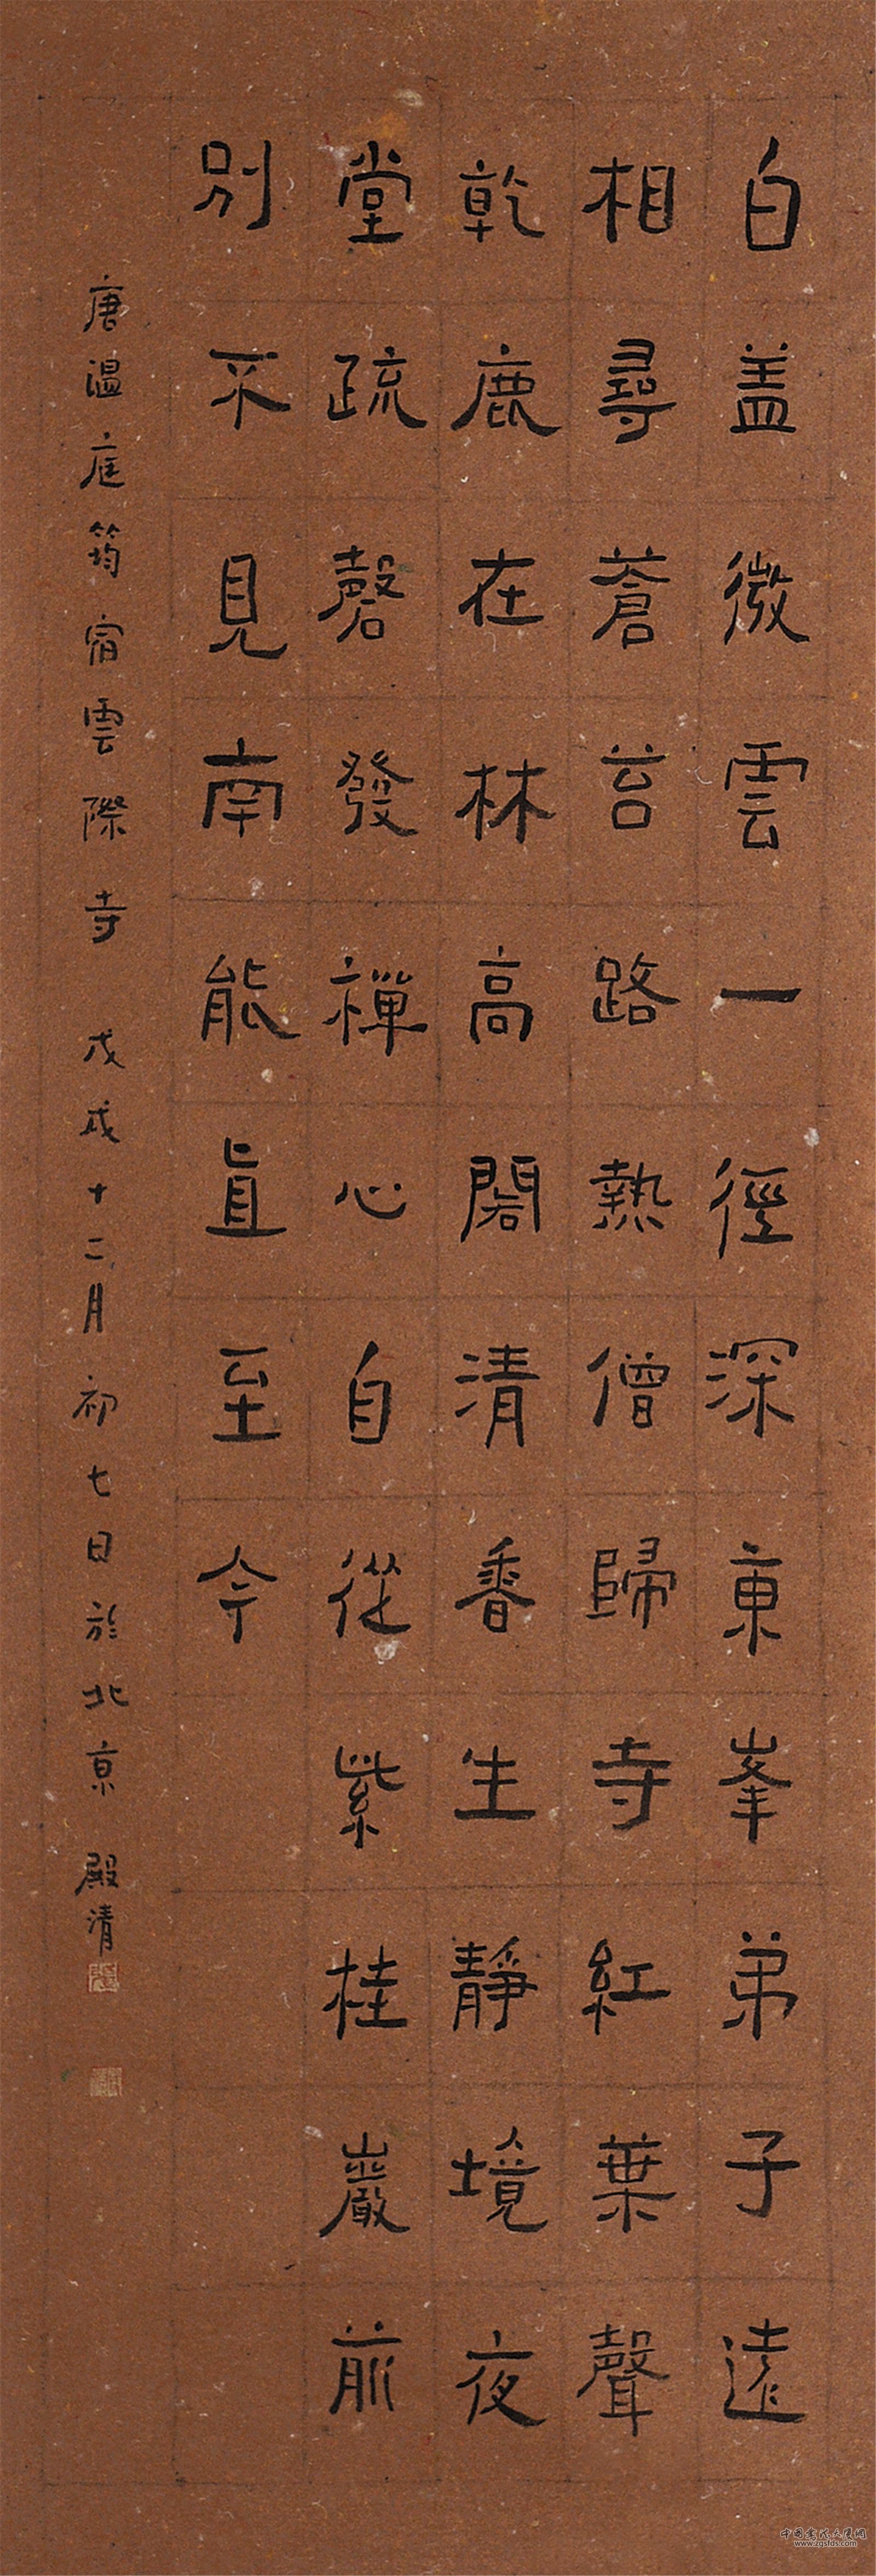 白盖微雲一徑深東峯弟子遠
相尋蒼苔路熱僧歸寺紅葉聲
乾鹿在林高閣清香生靜境夜
堂疏磬發禪心自從紫桂巖前
別不見南能直至今
唐温庭筠宿雲際寺 戊戌十二月初七日於北京 殿清
www.zgsfds.com